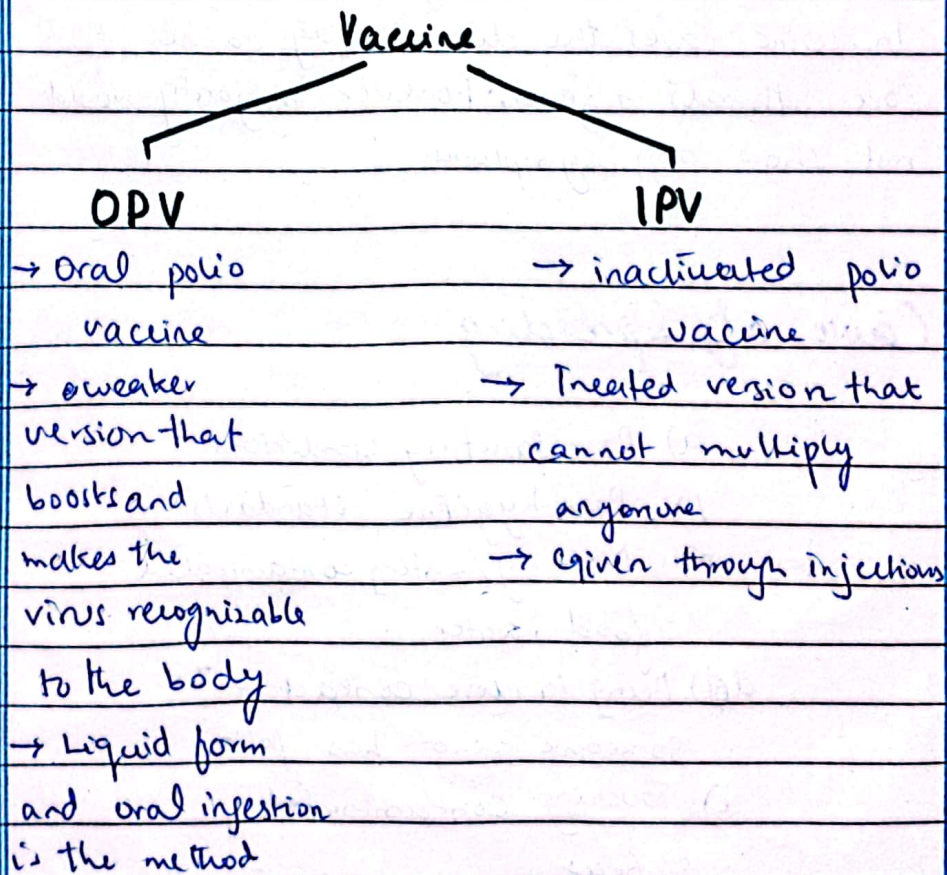 Vaccine
OPV
→ Oral polio
vaccine
→ weaker
version that
boosts and
makes the
virus recognizable
to the body
→ Liquid form
and oral ingestion
is the method
IPV
→ inactivated polio
vaccine
→ Treated version that
cannot multiply
anymore
→ Given through injections